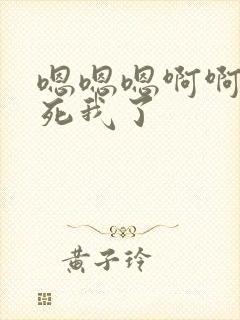 嗯嗯嗯啊啊
死我了
黄子玲